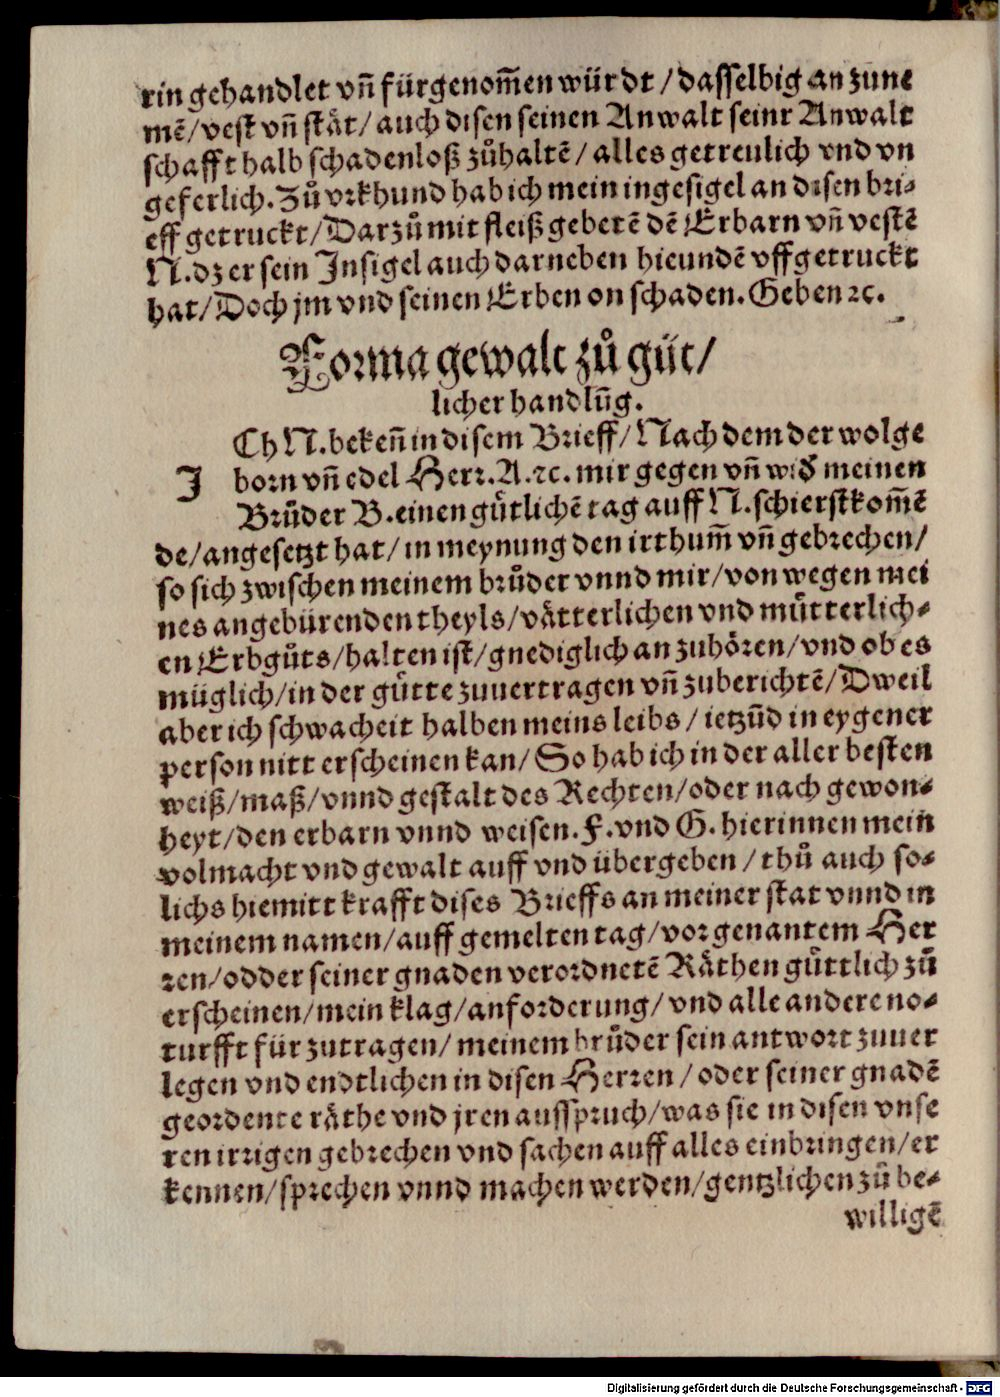 rin gehandlet vn̄ fürgenom̄en würdt / dasselbig an zune
mē / vest vn̄ stät / auch disen seinen Anwalt seinr Anwalt
schafft halb schadenloß zůhaltē / alles getreulich vnd vn
geferlich. Zů vrkhund hab ich mein ingesigel an disen bri⸗
eff getruckt / Darzů mit fleiß gebetē dē Erbarn vn̄ vestē
N. dz er sein Insigel auch darneben hieundē vffgetruckt
hat / Doch jm vnd seinen Erben on schaden. Geben ꝛc.
Forma gewalt zů güt /
licher handlūg.
ICh N. beken̄ in disem Brieff / Nach dem der wolge
born vn̄ edel Herr. A. ꝛc. mir gegen vn̄ wid meinen
Brůder B. einen gütlichē tag auff N. schierstkom̄ē
de / angesetzt hat / in meynung den irthum̄ vn̄ gebrechen /
so sich zwischen meinem brůder vnnd mir / von wegen mei
nes angebürenden theyls / vätterlichen vnd mütterlich⸗
en Erbgůts / halten ist / gnediglich an zuhören / vnd ob es
müglich / in der gütte zuuertragen vn̄ zuberichtē / Dweil
aber ich schwacheit halben meins leibs / ietzūd in eygener
person nitt erscheinen kan / So hab ich in der aller besten
weiß / maß / vnnd gestalt des Rechten / oder nach gewon⸗
heyt / den erbarn vnnd weisen. F. vnd G. hierinnen mein
volmacht vnd gewalt auff vnd übergeben / thů auch so⸗
lichs hiemitt krafft dises Brieffs an meiner stat vnnd in
meinem namen / auff gemelten tag / vor genantem Her
ren / odder seiner gnaden verordnetē Räthen güttlich zů
erscheinen / mein klag / anforderung / vnd alle andere no⸗
turfft für zutragen / meinem brůder sein antwort zuuer
legen vnd endtlichen in disen Herren / oder seiner gnadē
geordente räthe vnd jren ausspruch / was sie in disen vnse
ren irrigen gebrechen vnd sachen auff alles einbringen / er
kennen / sprechen vnnd machen werden / gentzlichen zů be⸗
willigē
Digitalisierung gefördert durch die Deutsche Forschungsgemeinschaft - DFG